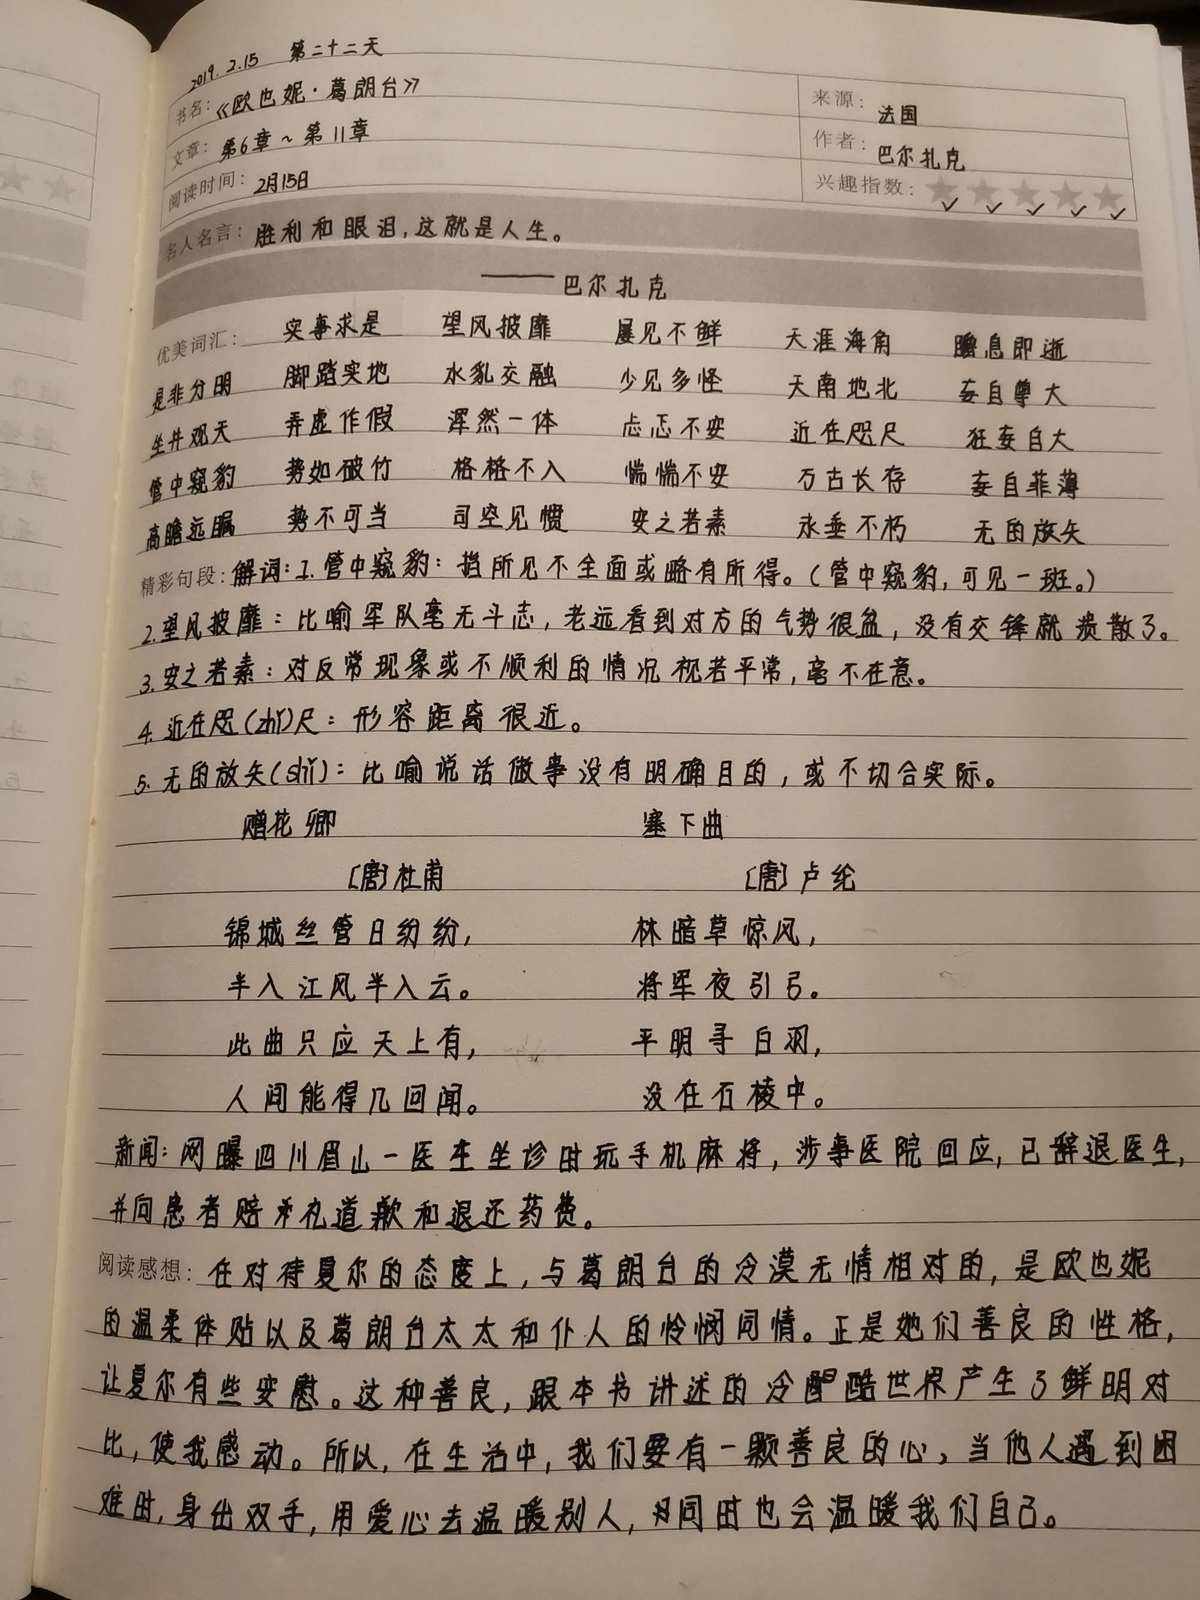 2019.2.15 第二十二天
书名：《欧也妮·葛朗台》 来源：法国
文章：第6章~第11章 作者：巴尔扎克
阅读时间：2月15日 兴趣指数：
名人名言：胜利和眼泪，这就是人生。
——巴尔扎克
优美词汇：实事求是 望风披靡 屡见不鲜 天涯海角 瞻息即逝
是非分明 脚踏实地 水乳交融 少见多怪 天南地北 妄自尊大
坐井观天 弄虚作假 浑然一体 忐忑不安 近在咫尺 狂妄自大
管中窥豹 势如破竹 格格不入 惴惴不安 万古长存 妄自菲薄
高瞻远瞩 势不可当 司空见惯 安之若素 永垂不朽 无的放矢
精彩句段：解词：1.管中窥豹：指所见不全面或略有所得。（管中窥豹，可见一斑。）
2.望风披靡：比喻军队毫无斗志，老远看到对方的气势很盆，没有交锋就溃散了。
3.安之若素：对反常现象或不顺利的情况视若平常，毫不在意。
4.近在咫(zhǐ)尺：形容距离很近。
5.无的放矢(shǐ)：比喻说话做事没有明确目的，或不切合实际。
赠花卿 塞下曲
[唐]杜甫 [唐]卢纶
锦城丝管日纷纷， 林暗草惊风，
半入江风半入云。 将军夜引弓。
此曲只应天上有， 平明寻白羽，
人间能得几回闻。 没在石棱中。
新闻：网曝四川眉山一医生坐诊时玩手机麻将，涉事医院回应，已辞退医生，
并向患者赔礼道歉和退还药费。
阅读感想：在对待夏尔的态度上，与葛朗台的冷漠无情相对的，是欧也妮
的温柔体贴以及葛朗台太太和仆人的怜悯同情。正是她们善良的性格，
让夏尔有些安慰。这种善良，跟本书讲述的冷酷世界产生了鲜明对
比，使我感动。所以，在生活中，我们要有一颗善良的心，当他人遇到困
难时，身出双手，用爱心去温暖别人，同时也会温暖我们自己。